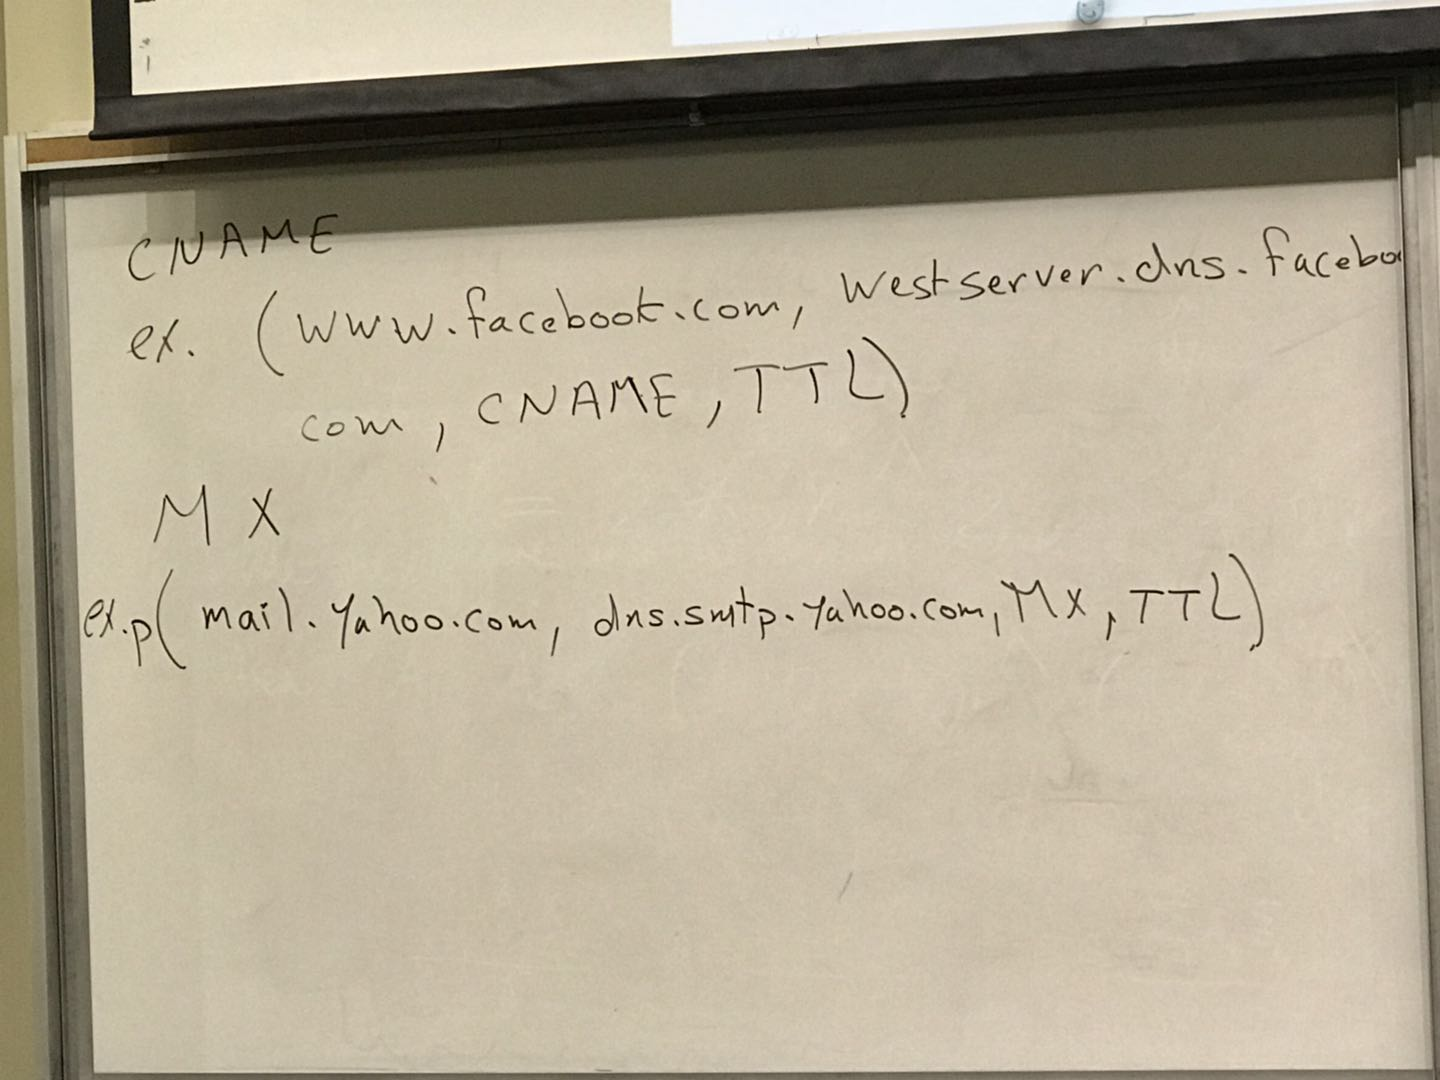 CNAME
ex. (www.facebook.com, westserver.dns.facebo
com, CNAME, TTL)
MX
ex.p( mail.yahoo.com, dns.smtp.yahoo.com, MX, TTL)